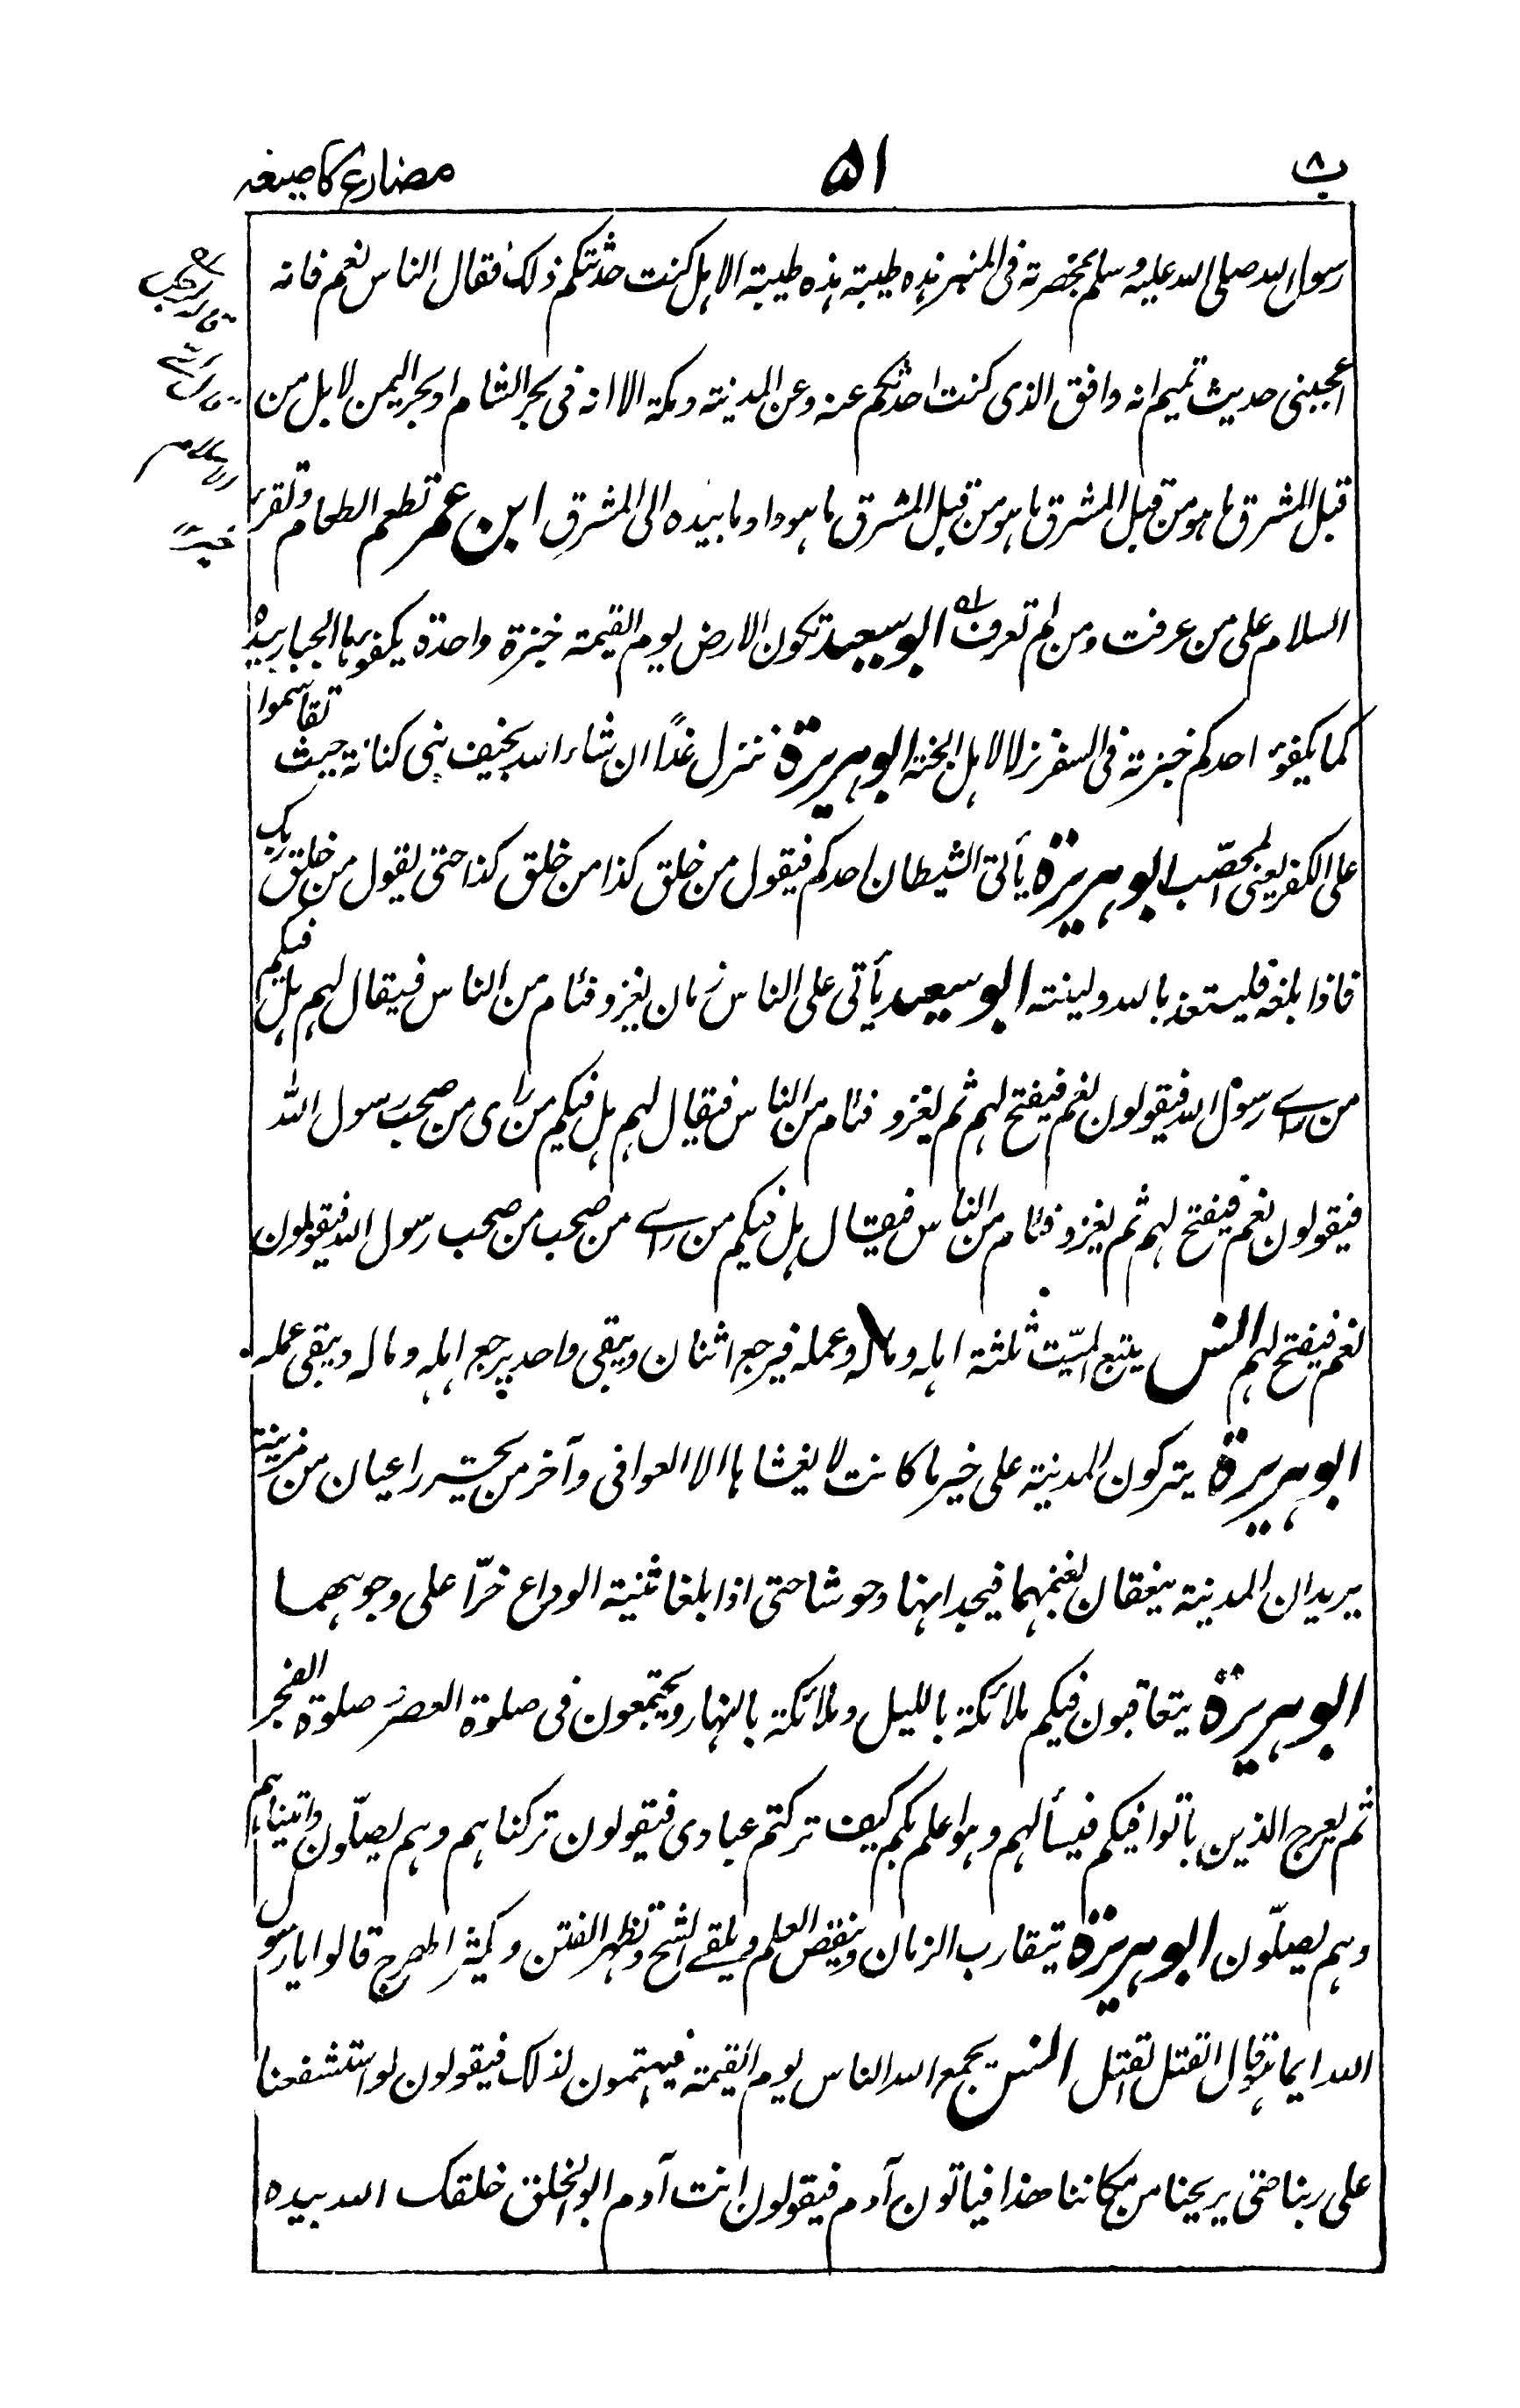 ب۸
۵۱
مضارع کا صیغہ
رسول الله صلی الله علیه وسلم بمخصرته فی المنبر هذه طیبة هذه طیبة الا هل کنت حدثتکم ذلک فقال الناس نعم فانه
اعجبنی حدیث تمیم انه وافق الذی کنت احدثکم عنه وعن المدینة ومکة الا انه فی بحر الشام او بحر الیمن لا بل من
قبل المشرق ما هو من قبل المشرق ما هو من قبل المشرق ما هو واوما بیده الی المشرق ابن عمر تطعم الطعام وتقرئ
السلام علی من عرفت ومن لم تعرف ابو سعید تکون الارض یوم القیمة خبزة واحدة یکفوها الجبار بیده
کما یکفؤ احدکم خبزته فی السفر نزلا لاهل الجنة ابو هریرة ننزل غدًا ان شاء الله بخیف بنی کنانة حیث تقاسموا
علی الکفر یعنی المحصّب ابو هریرة یأتی الشیطان احدکم فیقول من خلق کذا من خلق کذا حتی یقول من خلق ربک
فاذا بلغه فلیستعذ بالله ولینته ابو سعید یأتی علی الناس زمان یغزو فئام من الناس فیقال لهم هل فیکم
من رأے رسول الله فیقولون نعم فیفتح لهم ثم یغزو فئام من الناس فیقال لهم هل فیکم من رأی من صحب رسول الله
فیقولون نعم فیفتح لهم ثم یغزو فئام من الناس فیقال هل فیکم من رأے من صحب من صحب رسول الله فیقولون
نعم فیفتح لهم انس یتبع المیّت ثلثة اهله وماله وعمله فیرجع اثنان ویبقی واحد یرجع اهله وماله ویبقی عمله
ابو هریرة یترکون المدینة علی خیر ما کانت لا یغشاها الا العوافی وآخر من یحشر راعیان من مزینة
یریدان المدینة ینعقان بغنمهما فیجدانها وحوشا حتی اذا بلغا ثنیة الوداع خرّا علی وجوههما
ابو هریرة یتعاقبون فیکم ملائکة باللیل وملائکة بالنهار ویجتمعون فی صلوة العصر وصلوة الفجر
ثم یعرج الذین باتوا فیکم فیسألهم وهو اعلم بکم کیف ترکتم عبادی فیقولون ترکناهم وهم یصلّون واتیناهم
وهم یصلّون ابو هریرة یتقارب الزمان وینقص العلم ویلقے الشح وتظهر الفتن ویکثر الهرج قالوا یا رسول
الله ایما هو قال القتل القتل انس یجمع الله الناس یوم القیمة فیهتمون لذلک فیقولون لو استشفعنا
علی ربنا حتی یریحنا من مکاننا هذا فیاتون آدم فیقولون انت آدم ابو الخلق خلقک الله بیده